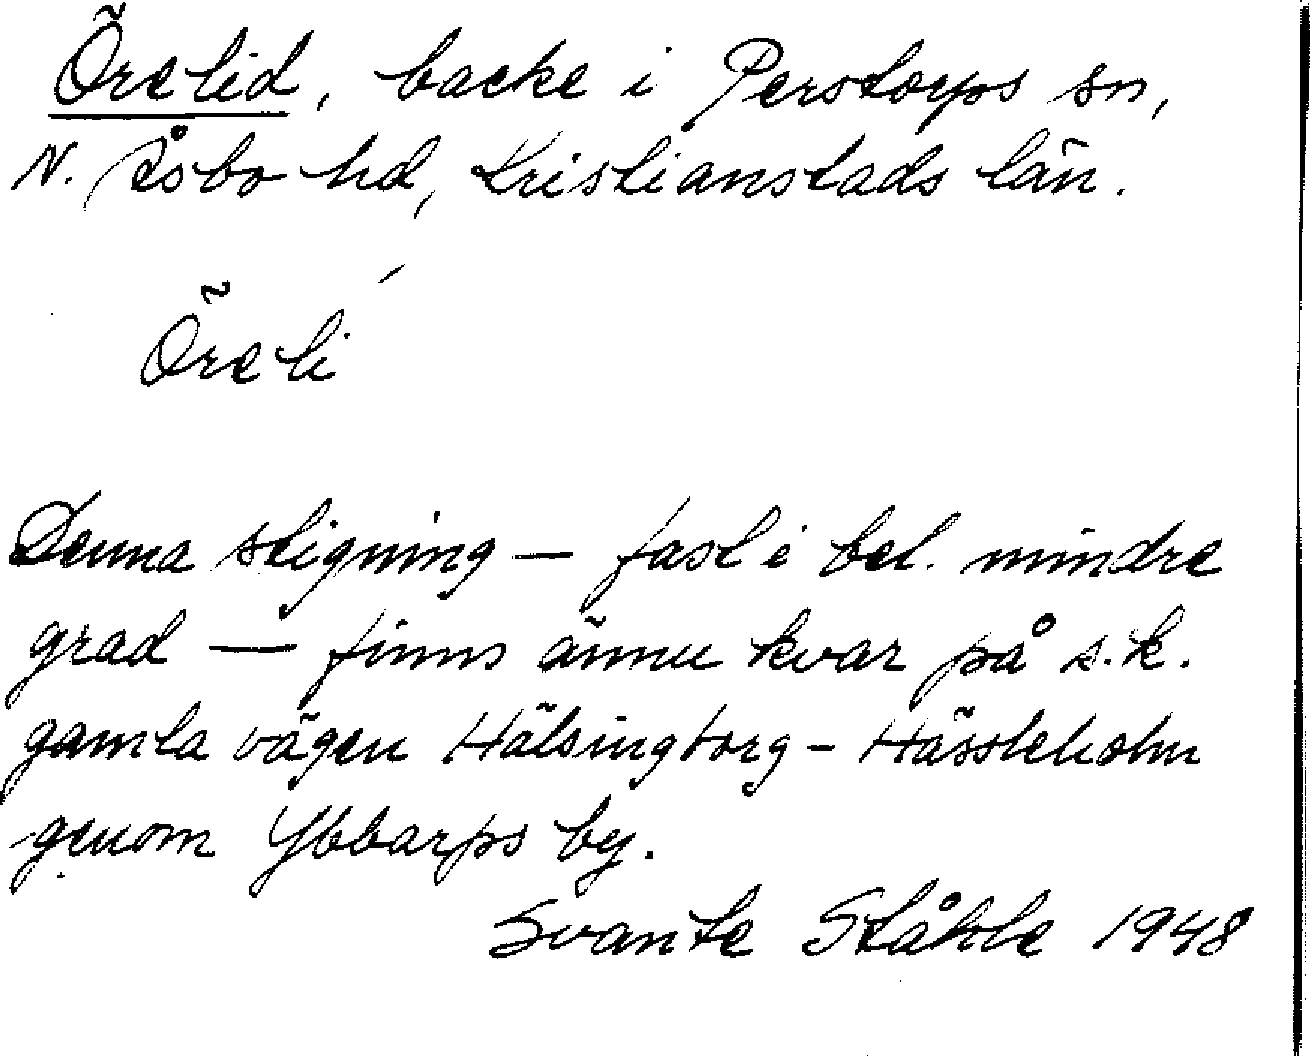 Örelid, backe i Perstorps sn,
N. Åsbo hd, Kristianstads län.
Öreli ́
Denna stigning — fast i bet. mindre
grad — finns ännu kvar på s.k.
gamla vägen Hälsingborg - Hässleholm
genom Ybbarps by.
Svante Ståhle 1948